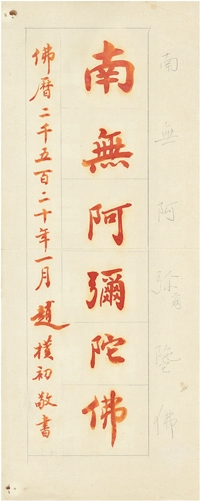 南無阿彌陀佛
佛曆二千五百二十年一月趙樸初敬書
南無阿弥陀佛